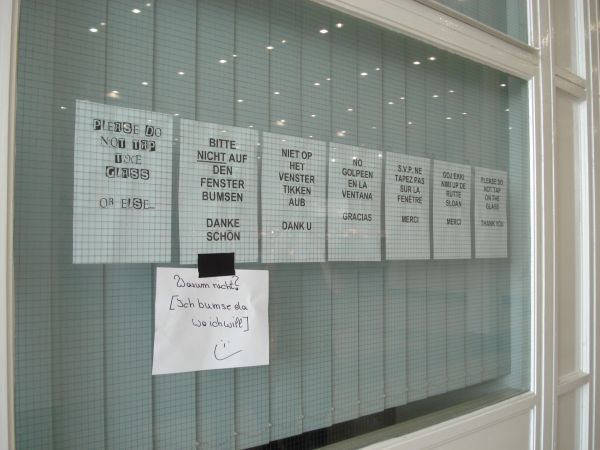 PLEASE DO
NOT TAP
THE
GLASS
OR ELSE...
BITTE
NICHT AUF
DEN
FENSTER
BUMSEN
DANKE
SCHÖN
NIET OP
HET
VENSTER
TIKKEN
AUB
DANK U
NO
GOLPEEN
EN LA
VENTANA
GRACIAS
S.V.P. NE
TAPEZ PAS
SUR LA
FENÊTRE
MERCI
OOJ EKKI
NIMI UP DE
RUTTE
SLOAN
MERCI
PLEASE DO
NOT TAP
ON THE
GLASS
THANK YOU
Warum nicht?
[Ich bumse da
wo ich will]